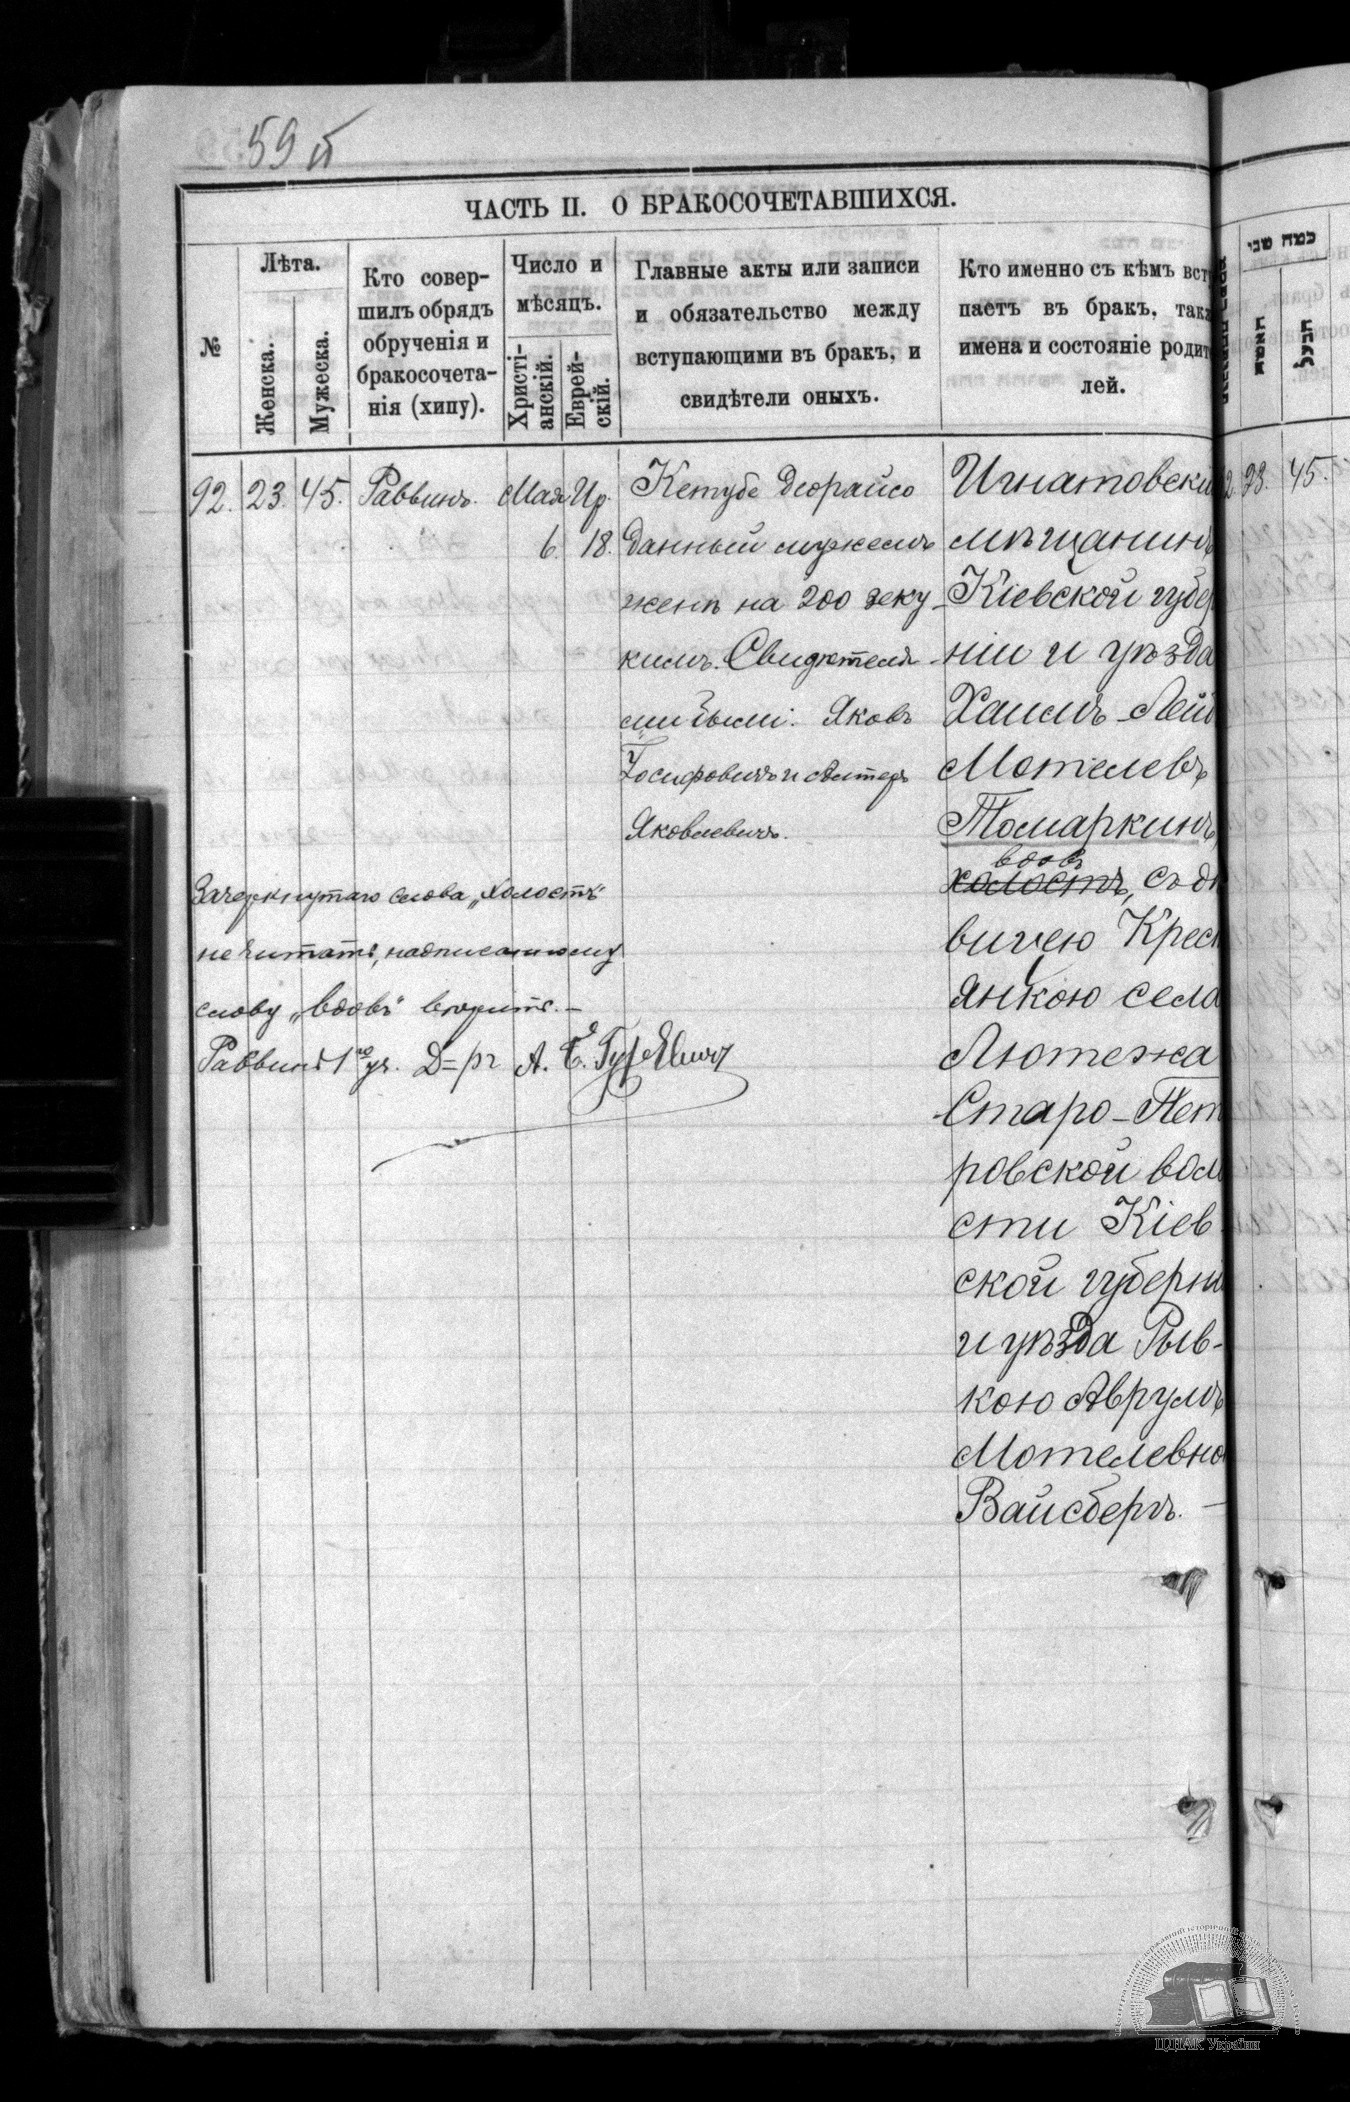 59 об
ЧАСТЬ II. О БРАКОСОЧЕТАВШИХСЯ.
№
Лѣта.
Женска.
Мужеска.
Кто совер-
шилъ обрядъ
обрученія и
бракосочета-
нія (хипу).
Число и
мѣсяцъ.
Христі-
анскій.
Еврей-
скій.
Главные акты или записи
и обязательство между
вступающими въ бракъ, и
свидѣтели оныхъ.
Кто именно съ кѣмъ всту
паетъ въ бракъ, такж
имена и состояніе родит
лей.
92. 23. 45. Раввинъ. Мая Ир.
6. 18.
Кетубе Деорайсо
данный мужемъ
женѣ на 200 зеку
кимъ. Свидѣтеля-
ми были: Яковъ
Іосифовичъ и
Яковлевичъ.
Игнатовскі
мѣщанинъ
Кіевской губер
ніи и уѣзда
Хаимъ-Лей
Мотелевъ
Томаркинъ,
вдовъ
холостъ, съ дѣ
вицею Крест
янкою села
Лютежа
Старо-Пет
ровской вол
сти Кіев-
ской губерні
и уѣзда Рыв-
кою Аврумъ
Мотелевно
Вайсбергъ. —
Зачеркнутаго слова „холостъ"
не читать, надписанному
слову „вдовъ" вѣрить. —
Раввинъ 1го уч. Д=ръ А. Б. Гуревичъ
כמה שני
האשה
הבעל
23. 45.
ЦДІАК України